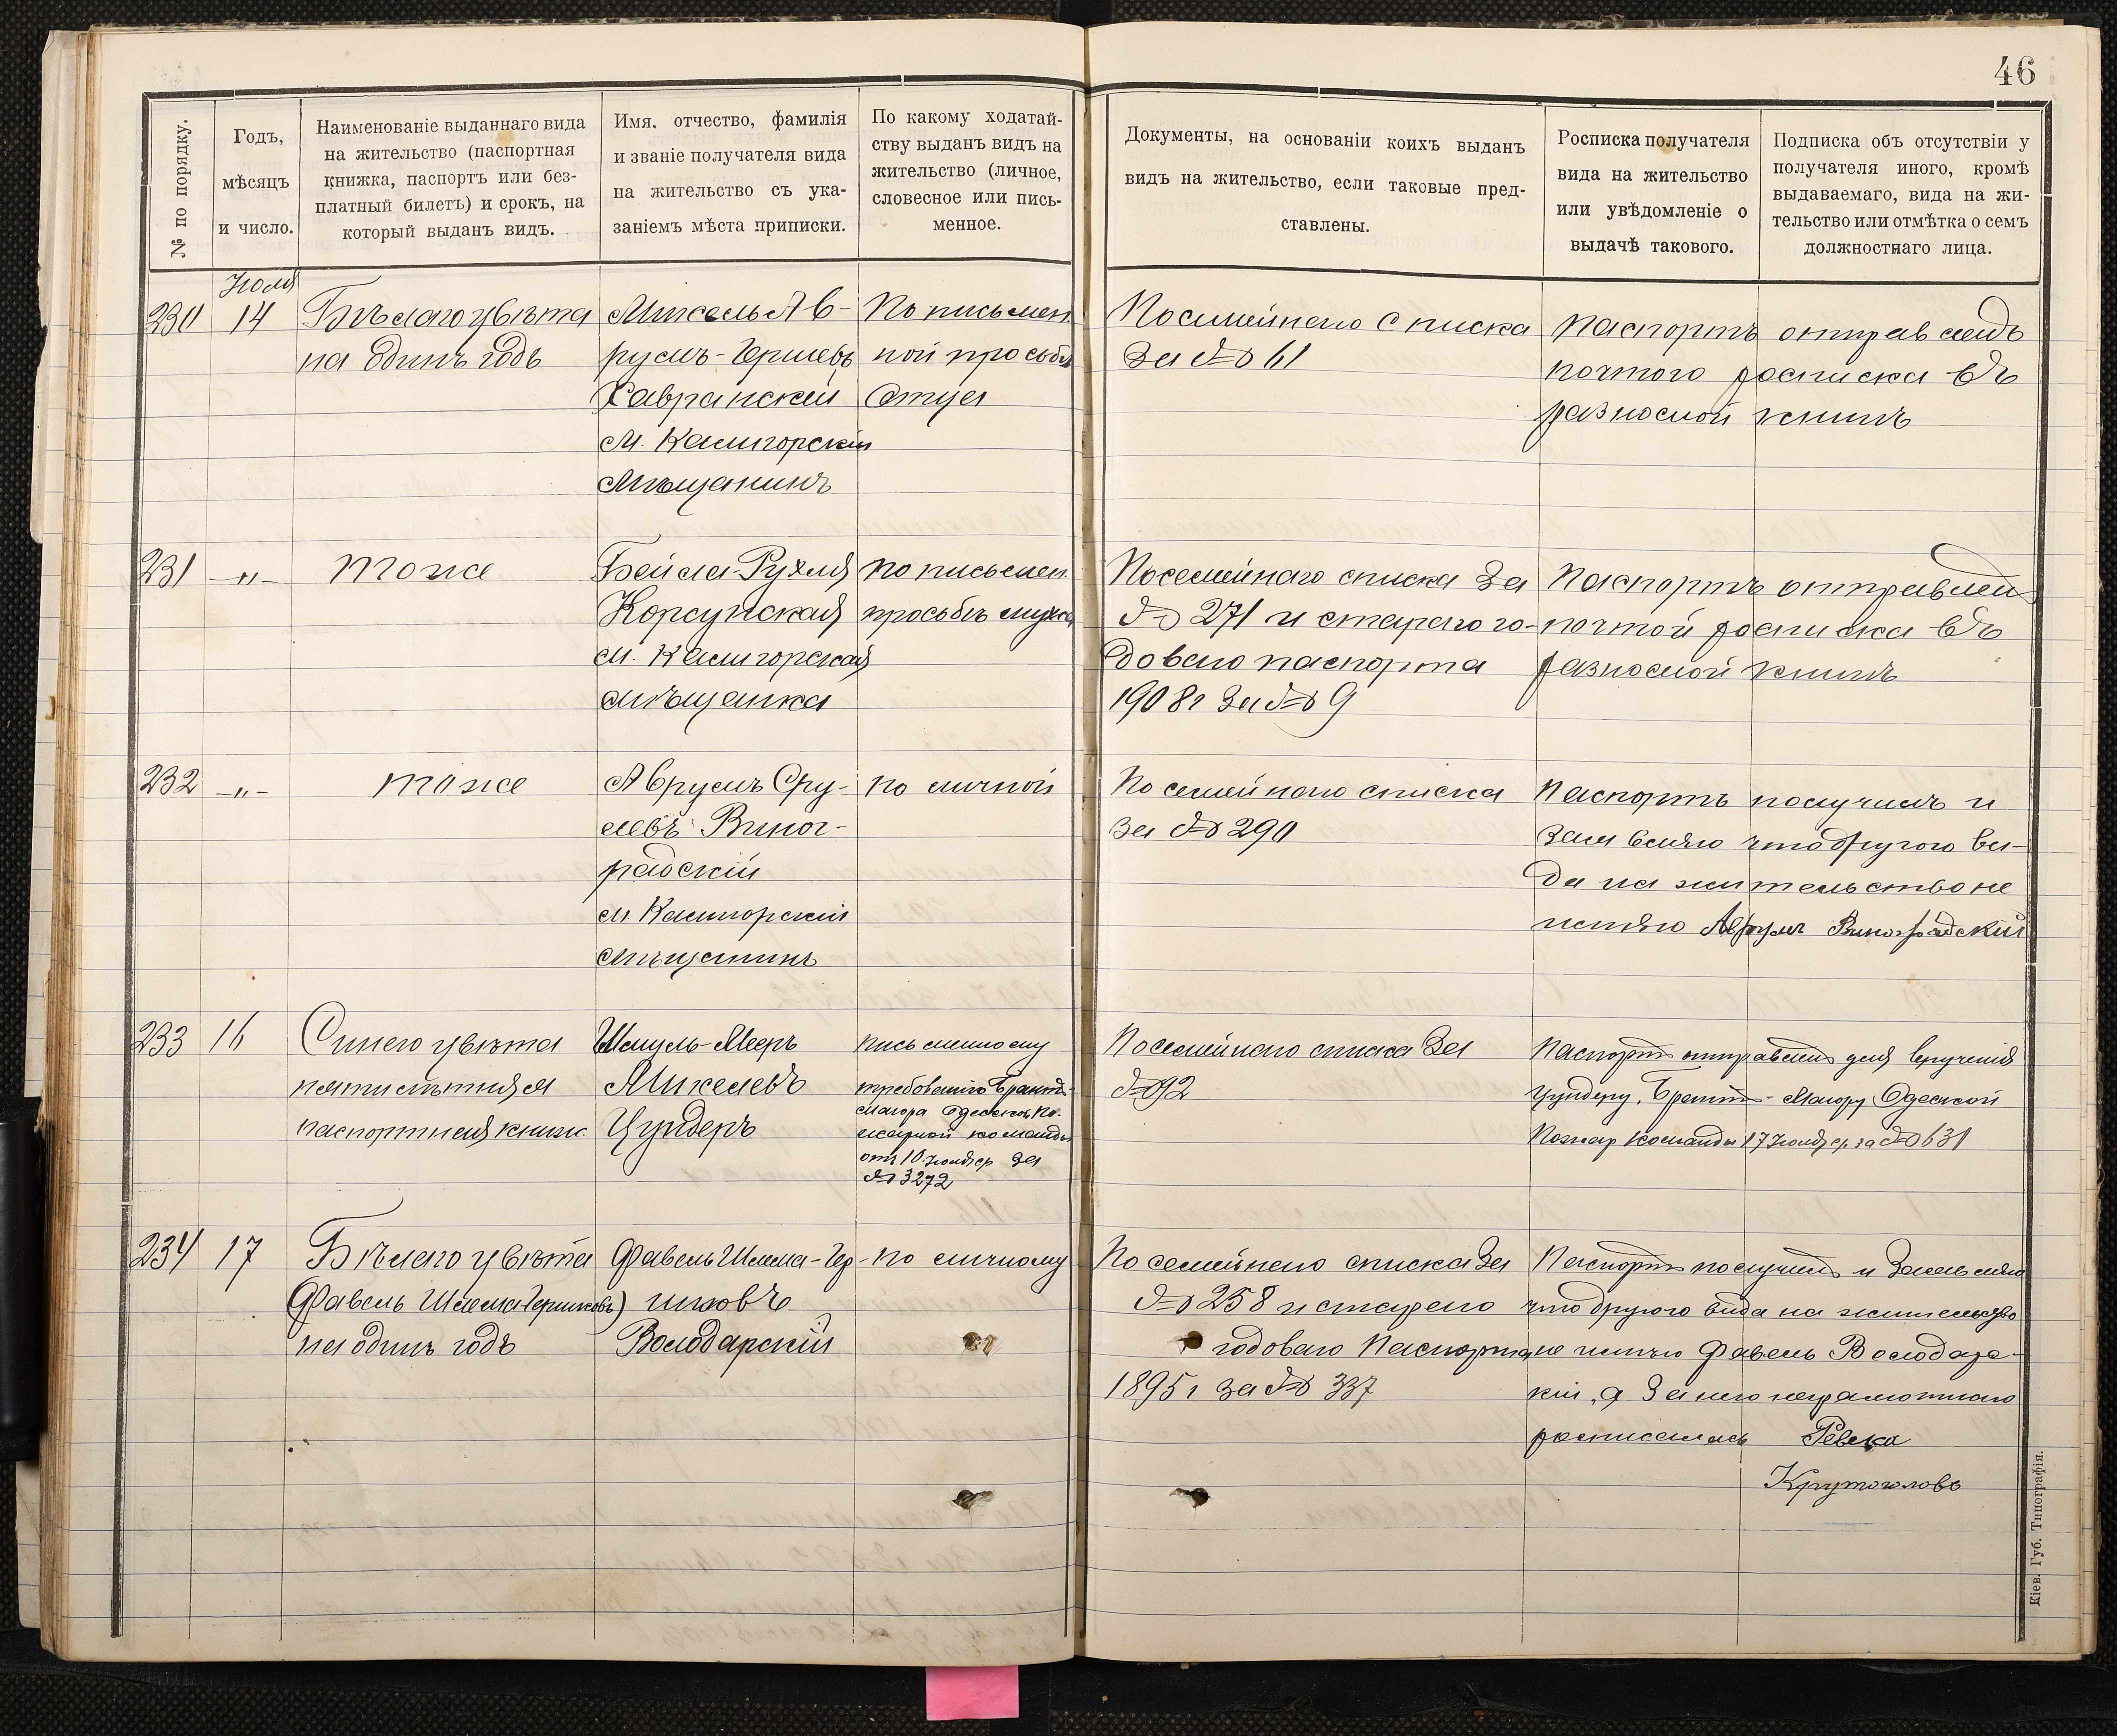 46
№ по порядку.
Годъ,
мѣсяцъ
и число.
Наименованіе выданнаго вида
на жительство (паспортная
книжка, паспортъ или без-
платный билетъ) и срокъ, на
который выданъ видъ.
Имя, отчество, фамилія
и званіе получателя вида
на жительство съ ука-
заніемъ мѣста приписки.
По какому ходатай-
ству выданъ видъ на
жительство (личное,
словесное или пись-
менное.
Документы, на основаніи коихъ выданъ
видъ на жительство, если таковые пред-
ставлены.
Росписка получателя
вида на жительство
или увѣдомленіе о
выдачѣ такового.
Подписка объ отсутствіи у
получателя иного, кромѣ
выдаваемаго, вида на жи-
тельство или отмѣтка о семъ
должностнаго лица.
Іюля
230
14
Бѣлаго цвѣта
на одинъ годъ
Микель Ав-
румъ-Гершевъ
Хавранскій
м. Калигорскій
Мѣщанинъ
По письмен
ной просьбѣ
Отца
По семейнаго списка
За № 61
Паспортъ отправленъ
почтою росписка въ
разносной книгѣ
231
-"-
Тоже
Бейла-Рухля
Корсунская
м. Калигорская
мѣщанка
по письмен
просьбѣ мужа
По семейнаго списка За
№ 271 и стараго го-
доваго паспорта
1908г За № 9
Паспортъ отправлен
почтой росписка въ
разносной книгѣ
232
-"-
тоже
Аврумъ Сру-
левъ Виног-
радскій
м. Калигорскій
Мѣщанинъ
по личной
По семейнаго списка
За № 290
Паспортъ получилъ и
заявляю что другого ви-
да на жительство не
имѣю Аврумъ Виноградскій
233
16
Синего цвѣта
пятилѣтняя
паспортная книж.
Шмуль-Мееръ
Микелевъ
Цундеръ
письменному
требованію Брандъ-
маіора Одесской По-
жарной команды
отъ 10 Іюля ср За
№ 3272
По семейнаго списка За
№ 92
Паспортъ отправленъ для врученія
Цундеру, Брантъ-Маіору Одеской
Пожар команды 17 Іюля ср. за № 631
234
17
Бѣлаго цвѣта
(Фавель Шлема Гершковъ)
на одинъ годъ
Фавель Шлема-Гер-
шковъ
Володарскій
по личному
По семейнаго списка За
№ 258 и стараго
годоваго Паспорта
1895г за № 337
Паспортъ получилъ и Заявляю
что другого вида на жительство
не имѣю Фавель Володарс-
кій, а За него неграмотнаго
росписалась Ревека
Крутоголовъ
Кіев. Губ. Типографія.